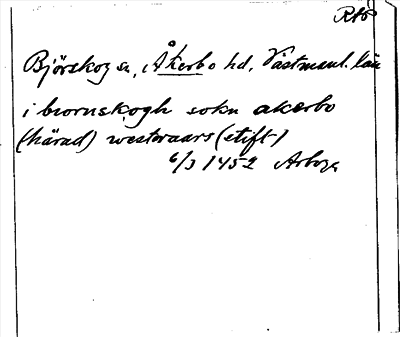 RAp
Björskog sn, Åkerbo hd, Västmanl. län
i biornskogh sokn akerbo
(härad) westeraars (stift)
6/3 1452 Arboga